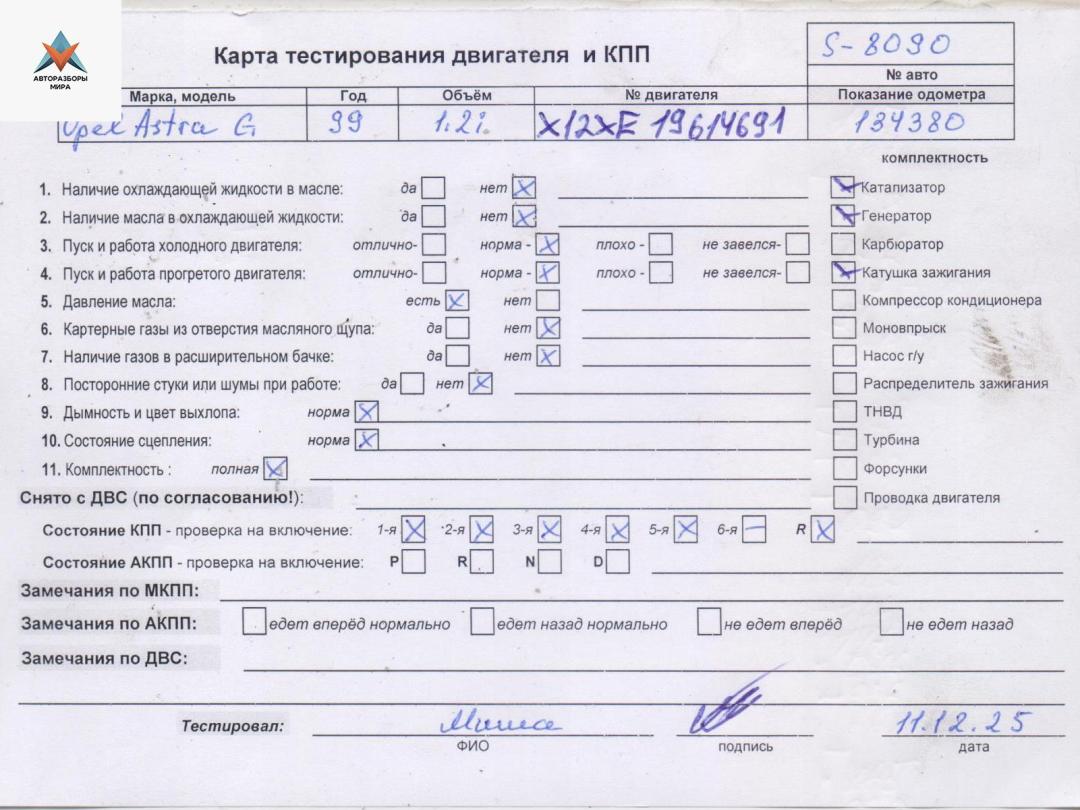 АВТОРАЗБОРЫ
МИРА
Карта тестирования двигателя и КПП
S-8090
№ авто
Марка, модель Год Объём № двигателя Показание одометра
Opel Astra G 99 1.2i X12XE 19614691 134380
комплектность
1. Наличие охлаждающей жидкости в масле: да нет X Катализатор
2. Наличие масла в охлаждающей жидкости: да нет X Генератор
3. Пуск и работа холодного двигателя: отлично- норма - X плохо - не завелся- Карбюратор
4. Пуск и работа прогретого двигателя: отлично- норма - X плохо - не завелся- Катушка зажигания
5. Давление масла: есть X нет Компрессор кондиционера
6. Картерные газы из отверстия масляного щупа: да нет X Моновпрыск
7. Наличие газов в расширительном бачке: да нет X Насос г/у
8. Посторонние стуки или шумы при работе: да нет X Распределитель зажигания
9. Дымность и цвет выхлопа: норма X ТНВД
10. Состояние сцепления: норма X Турбина
11. Комплектность : полная X Форсунки
Снято с ДВС (по согласованию!): Проводка двигателя
Состояние КПП - проверка на включение: 1-я X 2-я X 3-я X 4-я X 5-я X 6-я – R X
Состояние АКПП - проверка на включение: P R N D
Замечания по МКПП:
Замечания по АКПП: едет вперёд нормально едет назад нормально не едет вперёд не едет назад
Замечания по ДВС:
Тестировал: Миша 11.12.25
ФИО подпись дата